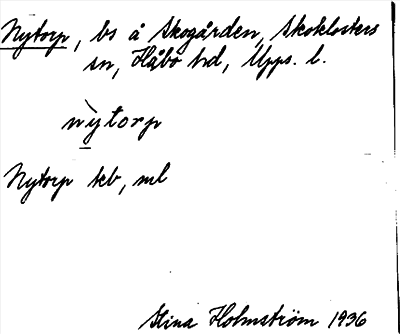 Nytorp, bs å Skogården, Skoklosters
sn, Håbo hd, Upps. l.
nỳtorp
Nytorp tkb, ml
Stina Holmström 1936